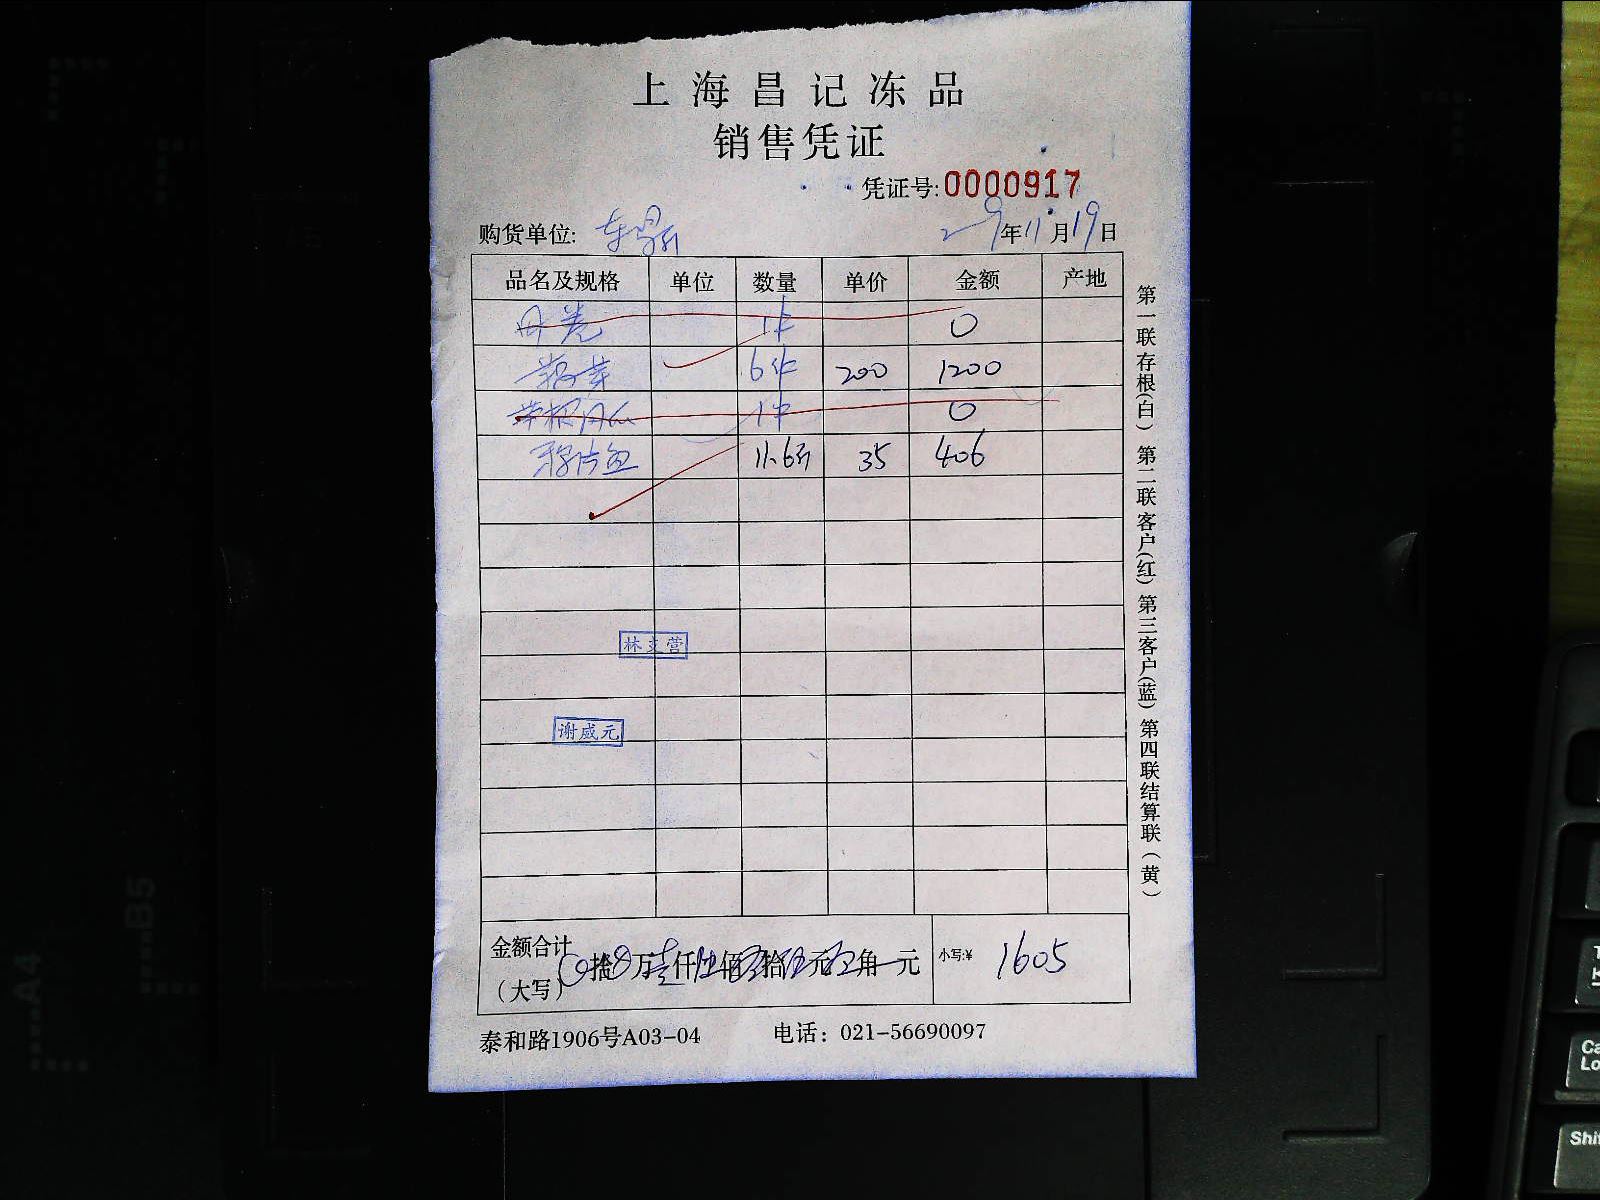 上海昌记冻品
销售凭证
凭证号:0000917
购货单位:
29年11月19日
品名及规格 单位 数量 单价 金额 产地
1件 0
6件 200 1200
1件 0
11.6斤 35 406
林支营
谢威元
金额合计
(大写) 0拾0万壹仟陆佰零拾伍元 角 元 小写:¥ 1605
泰和路1906号A03-04 电话：021-56690097
第一联存根(白) 第二联客户(红) 第三客户(蓝) 第四联结算联(黄)
A4
B5